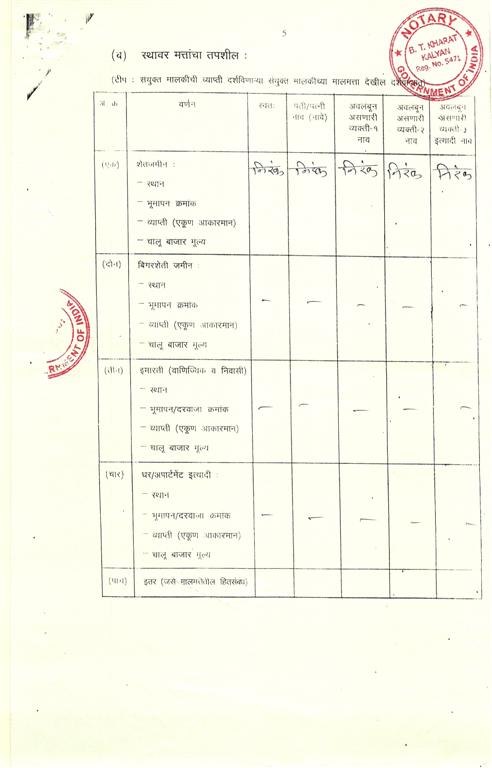 5
(ब) स्थावर मत्तांचा तपशील :
(टीप : संयुक्त मालकीची व्याप्ती दर्शविणाऱ्या संयुक्त मालकीच्या मालमत्ता देखील
NOTARY
B. T. KHARAT
KALYAN
Reg. No. 5471
GOVERNMENT OF INDIA
अ. क्र वर्णन स्वतः पती/पत्नी नाव (नावे) अवलंबून असणारी व्यक्ती-१ नाव अवलंबून असणारी व्यक्ती-२ नाव अवलंबून असणारी व्यक्ती-३ इत्यादी नाव
(एक) शेतजमीन : निरंक निरंक निरंक निरंक निरंक
– स्थान
– भूमापन क्रमांक
– व्याप्ती (एकूण आकारमान)
– चालू बाजार मूल्य
(दोन) बिगरशेती जमीन :
– स्थान
– भूमापन क्रमांक — — — — —
– व्याप्ती (एकूण आकारमान)
– चालू बाजार मूल्य
(तीन) इमारती (वाणिज्यिक व निवासी)
– स्थान
– भूमापन/दरवाजा क्रमांक — — — — —
– व्याप्ती (एकूण आकारमान)
– चालू बाजार मूल्य
(चार) घर/अपार्टमेंट इत्यादी :
– स्थान
– भूमापन/दरवाजा क्रमांक — — — — —
– व्याप्ती (एकूण आकारमान)
– चालू बाजार मूल्य
(पाच) इतर (जसे मालमत्तेतील हितसंबंध)